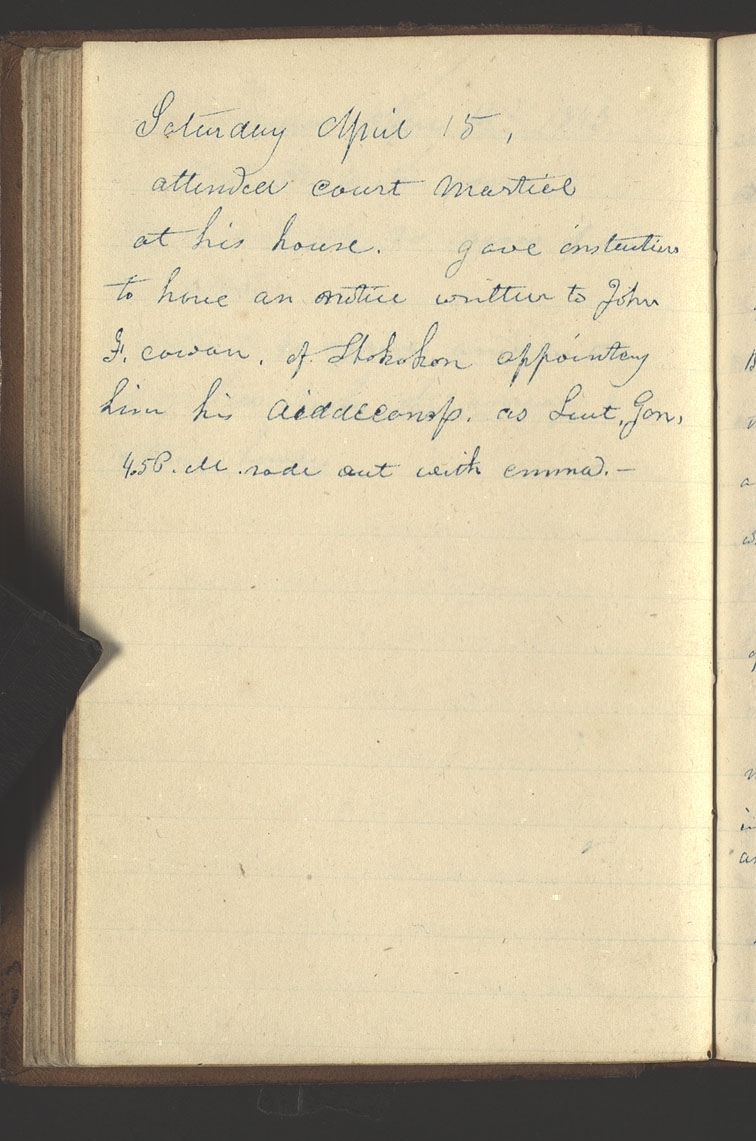 Saturday April 15,
attended court Martial
at his house. gave instuctions
to have an notice written to John
F. cowan. of Shokokon appointing
him his aiddecamp. as Lieut, Gen,
4.5 P. M. rode out with emma. —